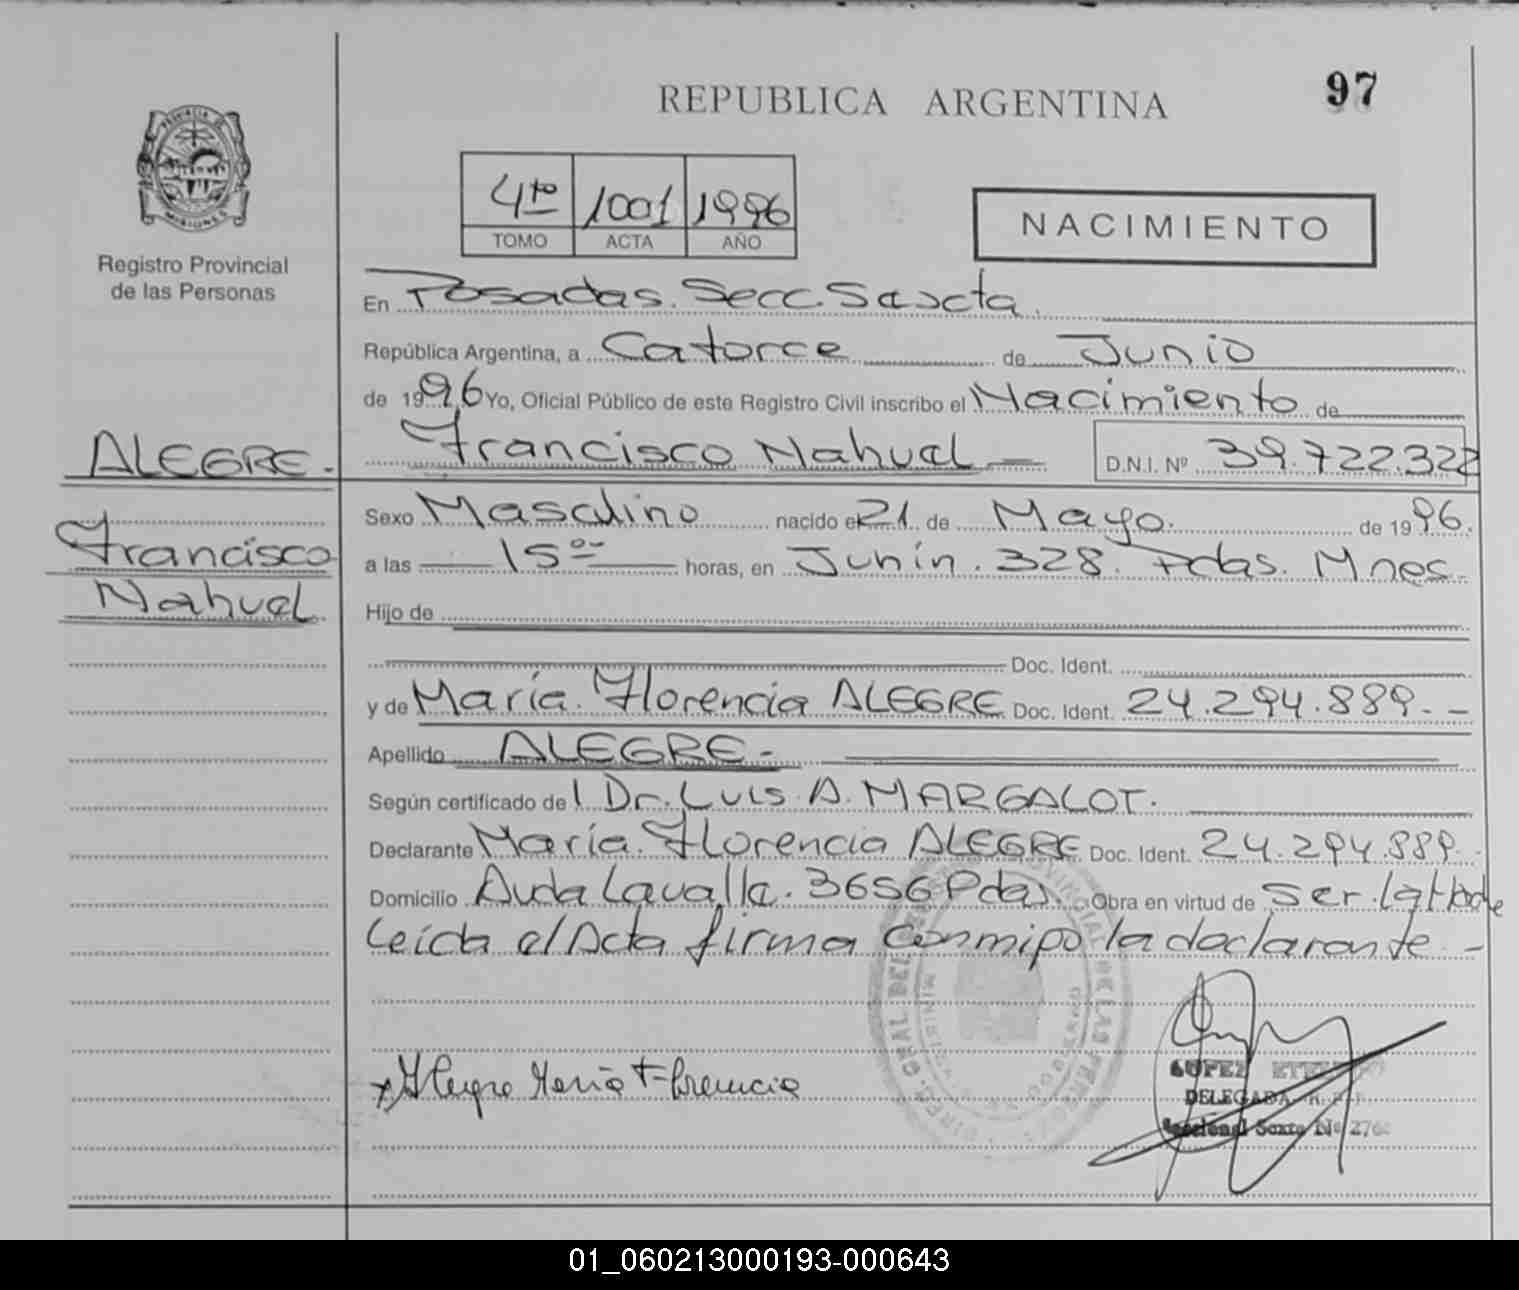 97
REPUBLICA ARGENTINA
PROVINCIA DE
MISIONES
Registro Provincial
de las Personas
4to 1001 1996
TOMO ACTA AÑO
NACIMIENTO
En Posadas. Secc. Sexta
República Argentina, a Catorce de Junio
de 1996 Yo, Oficial Público de este Registro Civil inscribo el Nacimiento de
Francisco Nahuel D.N.I. Nº 39.722.322
ALEGRE.
Francisco
Nahuel
Sexo Masculino nacido el 21 de Mayo. de 1996.
a las 15 00 horas, en Junín. 328. Pdas. Mnes.
Hijo de
Doc. Ident.
y de María. Florencia ALEGRE Doc. Ident. 24.294.889.-
Apellido ALEGRE.-
Según certificado del Dr. Luis A. MARGALOT.
Declarante María. Florencia ALEGRE Doc. Ident. 24.294.889.-
Domicilio Avda Lavalle. 3656 Pdas. Obra en virtud de Ser. la
Leída el Acta firma conmigo la declarante.-
Alegre María Florencia
LOPEZ
DELEGADA R.P.P.
Seccional Sexta Nº 276
01_060213000193-000643